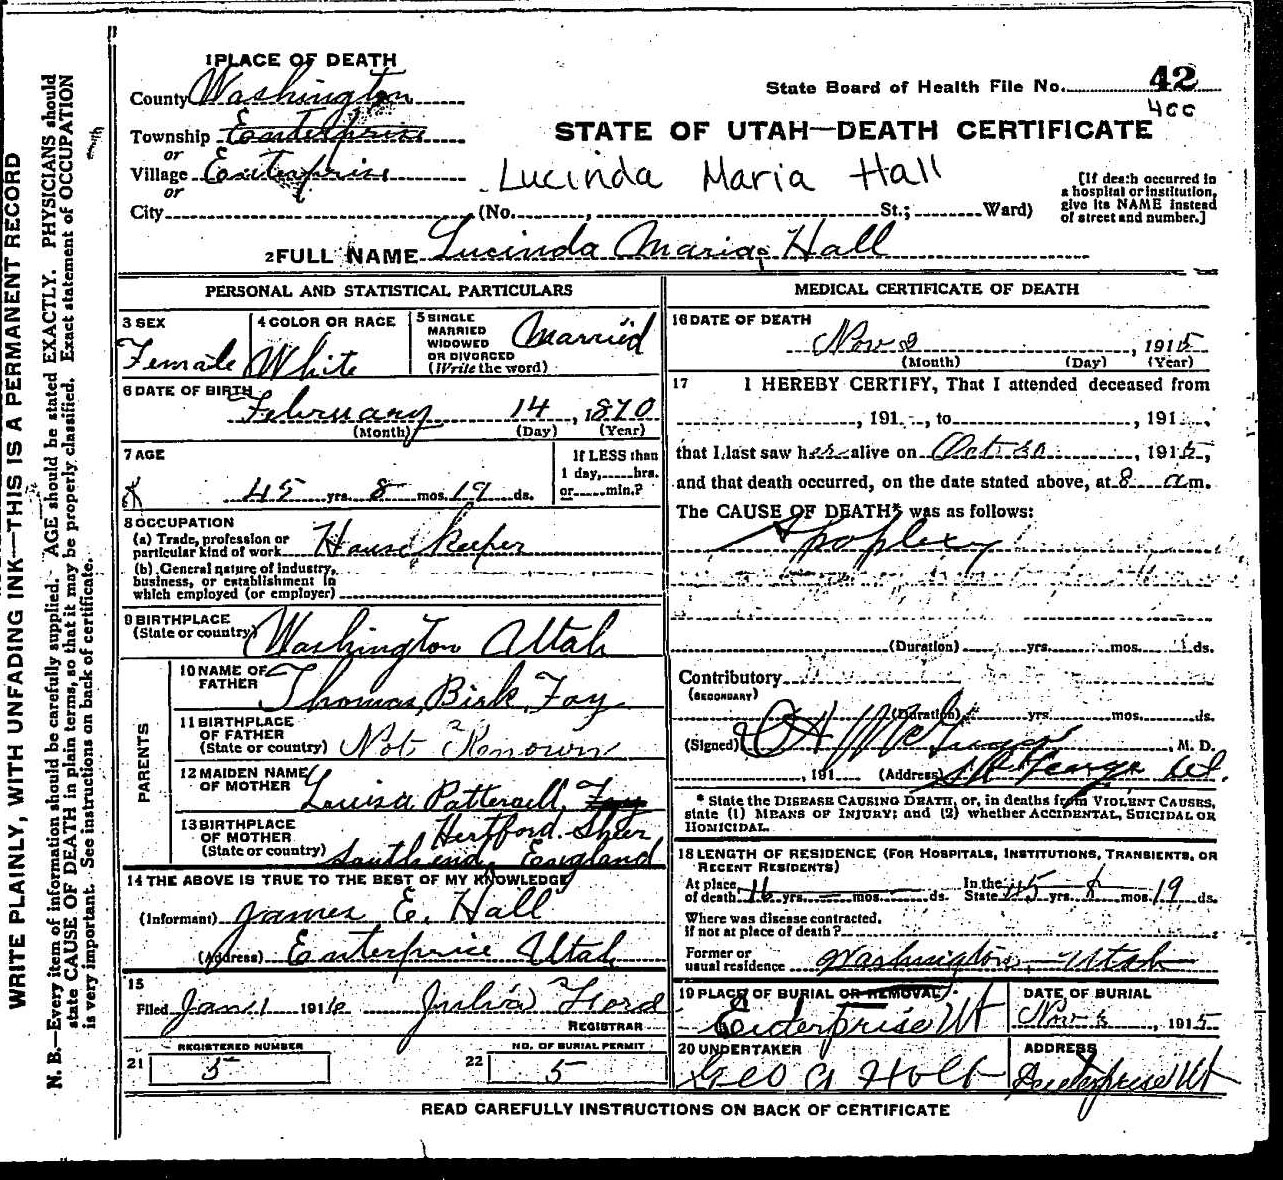 WRITE PLAINLY, WITH UNFADING INK—THIS IS A PERMANENT RECORD
N. B.—Every item of information should be carefully supplied. AGE should be stated EXACTLY. PHYSICIANS should
state CAUSE OF DEATH in plain terms, so that it may be properly classified. Exact statement of OCCUPATION
is very important. See instructions on back of certificate.
1 PLACE OF DEATH
County Washington
Township Enterprise
or
Village Enterprise
or
City (No. , St.; Ward)
State Board of Health File No. 42
400
STATE OF UTAH—DEATH CERTIFICATE
Lucinda Maria Hall
[If death occurred in
a hospital or institution,
give its NAME instead
of street and number.]
2 FULL NAME Lucinda Maria Hall
PERSONAL AND STATISTICAL PARTICULARS
3 SEX
Female
4 COLOR OR RACE
White
5 SINGLE
MARRIED
WIDOWED
OR DIVORCED
(Write the word)
Married
6 DATE OF BIRTH
February 14, 1870
(Month) (Day) (Year)
7 AGE
45 yrs. 8 mos. 19 ds.
If LESS than
1 day, hrs.
or min.?
8 OCCUPATION
(a) Trade, profession or
particular kind of work House Keeper
(b) General nature of industry,
business, or establishment in
which employed (or employer)
9 BIRTHPLACE
(State or country) Washington Utah
PARENTS
10 NAME OF
FATHER Thomas Birk Foy
11 BIRTHPLACE
OF FATHER
(State or country) Not Known
12 MAIDEN NAME
OF MOTHER Louisa
13 BIRTHPLACE
OF MOTHER
(State or country)
Hertford Sheer
Southend, England
14 THE ABOVE IS TRUE TO THE BEST OF MY KNOWLEDGE
(Informant) James E. Hall
(Address) Enterprise Utah
15
Filed Jan 1 1916 Julia Ford
REGISTRAR
21 REGISTERED NUMBER
5
22 NO. OF BURIAL PERMIT
5
MEDICAL CERTIFICATE OF DEATH
16 DATE OF DEATH
Nov 2, 1915
(Month) (Day) (Year)
17 I HEREBY CERTIFY, That I attended deceased from
, 191 , to , 191
that I last saw her alive on Oct. 30, 1915,
and that death occurred, on the date stated above, at 8 a m.
The CAUSE OF DEATH* was as follows:
Apoplexy
(Duration) yrs. mos. ds.
Contributory
(SECONDARY)
(Duration) yrs. mos. ds.
(Signed) , M. D.
, 191 (Address) St George Ut.
* State the DISEASE CAUSING DEATH, or, in deaths from VIOLENT CAUSES,
state (1) MEANS OF INJURY; and (2) whether ACCIDENTAL, SUICIDAL OR
HOMICIDAL.
18 LENGTH OF RESIDENCE (FOR HOSPITALS, INSTITUTIONS, TRANSIENTS, OR
RECENT RESIDENTS)
At place
of death 16 yrs. mos. ds. In the
State 45 yrs. 8 mos. 19 ds.
Where was disease contracted,
if not at place of death?
Former or
usual residence Washington, Utah
19 PLACE OF BURIAL OR REMOVAL
Enterprise Ut
DATE OF BURIAL
Nov 3, 1915
20 UNDERTAKER
Geo A Holt
ADDRESS
Enterprise Ut
READ CAREFULLY INSTRUCTIONS ON BACK OF CERTIFICATE